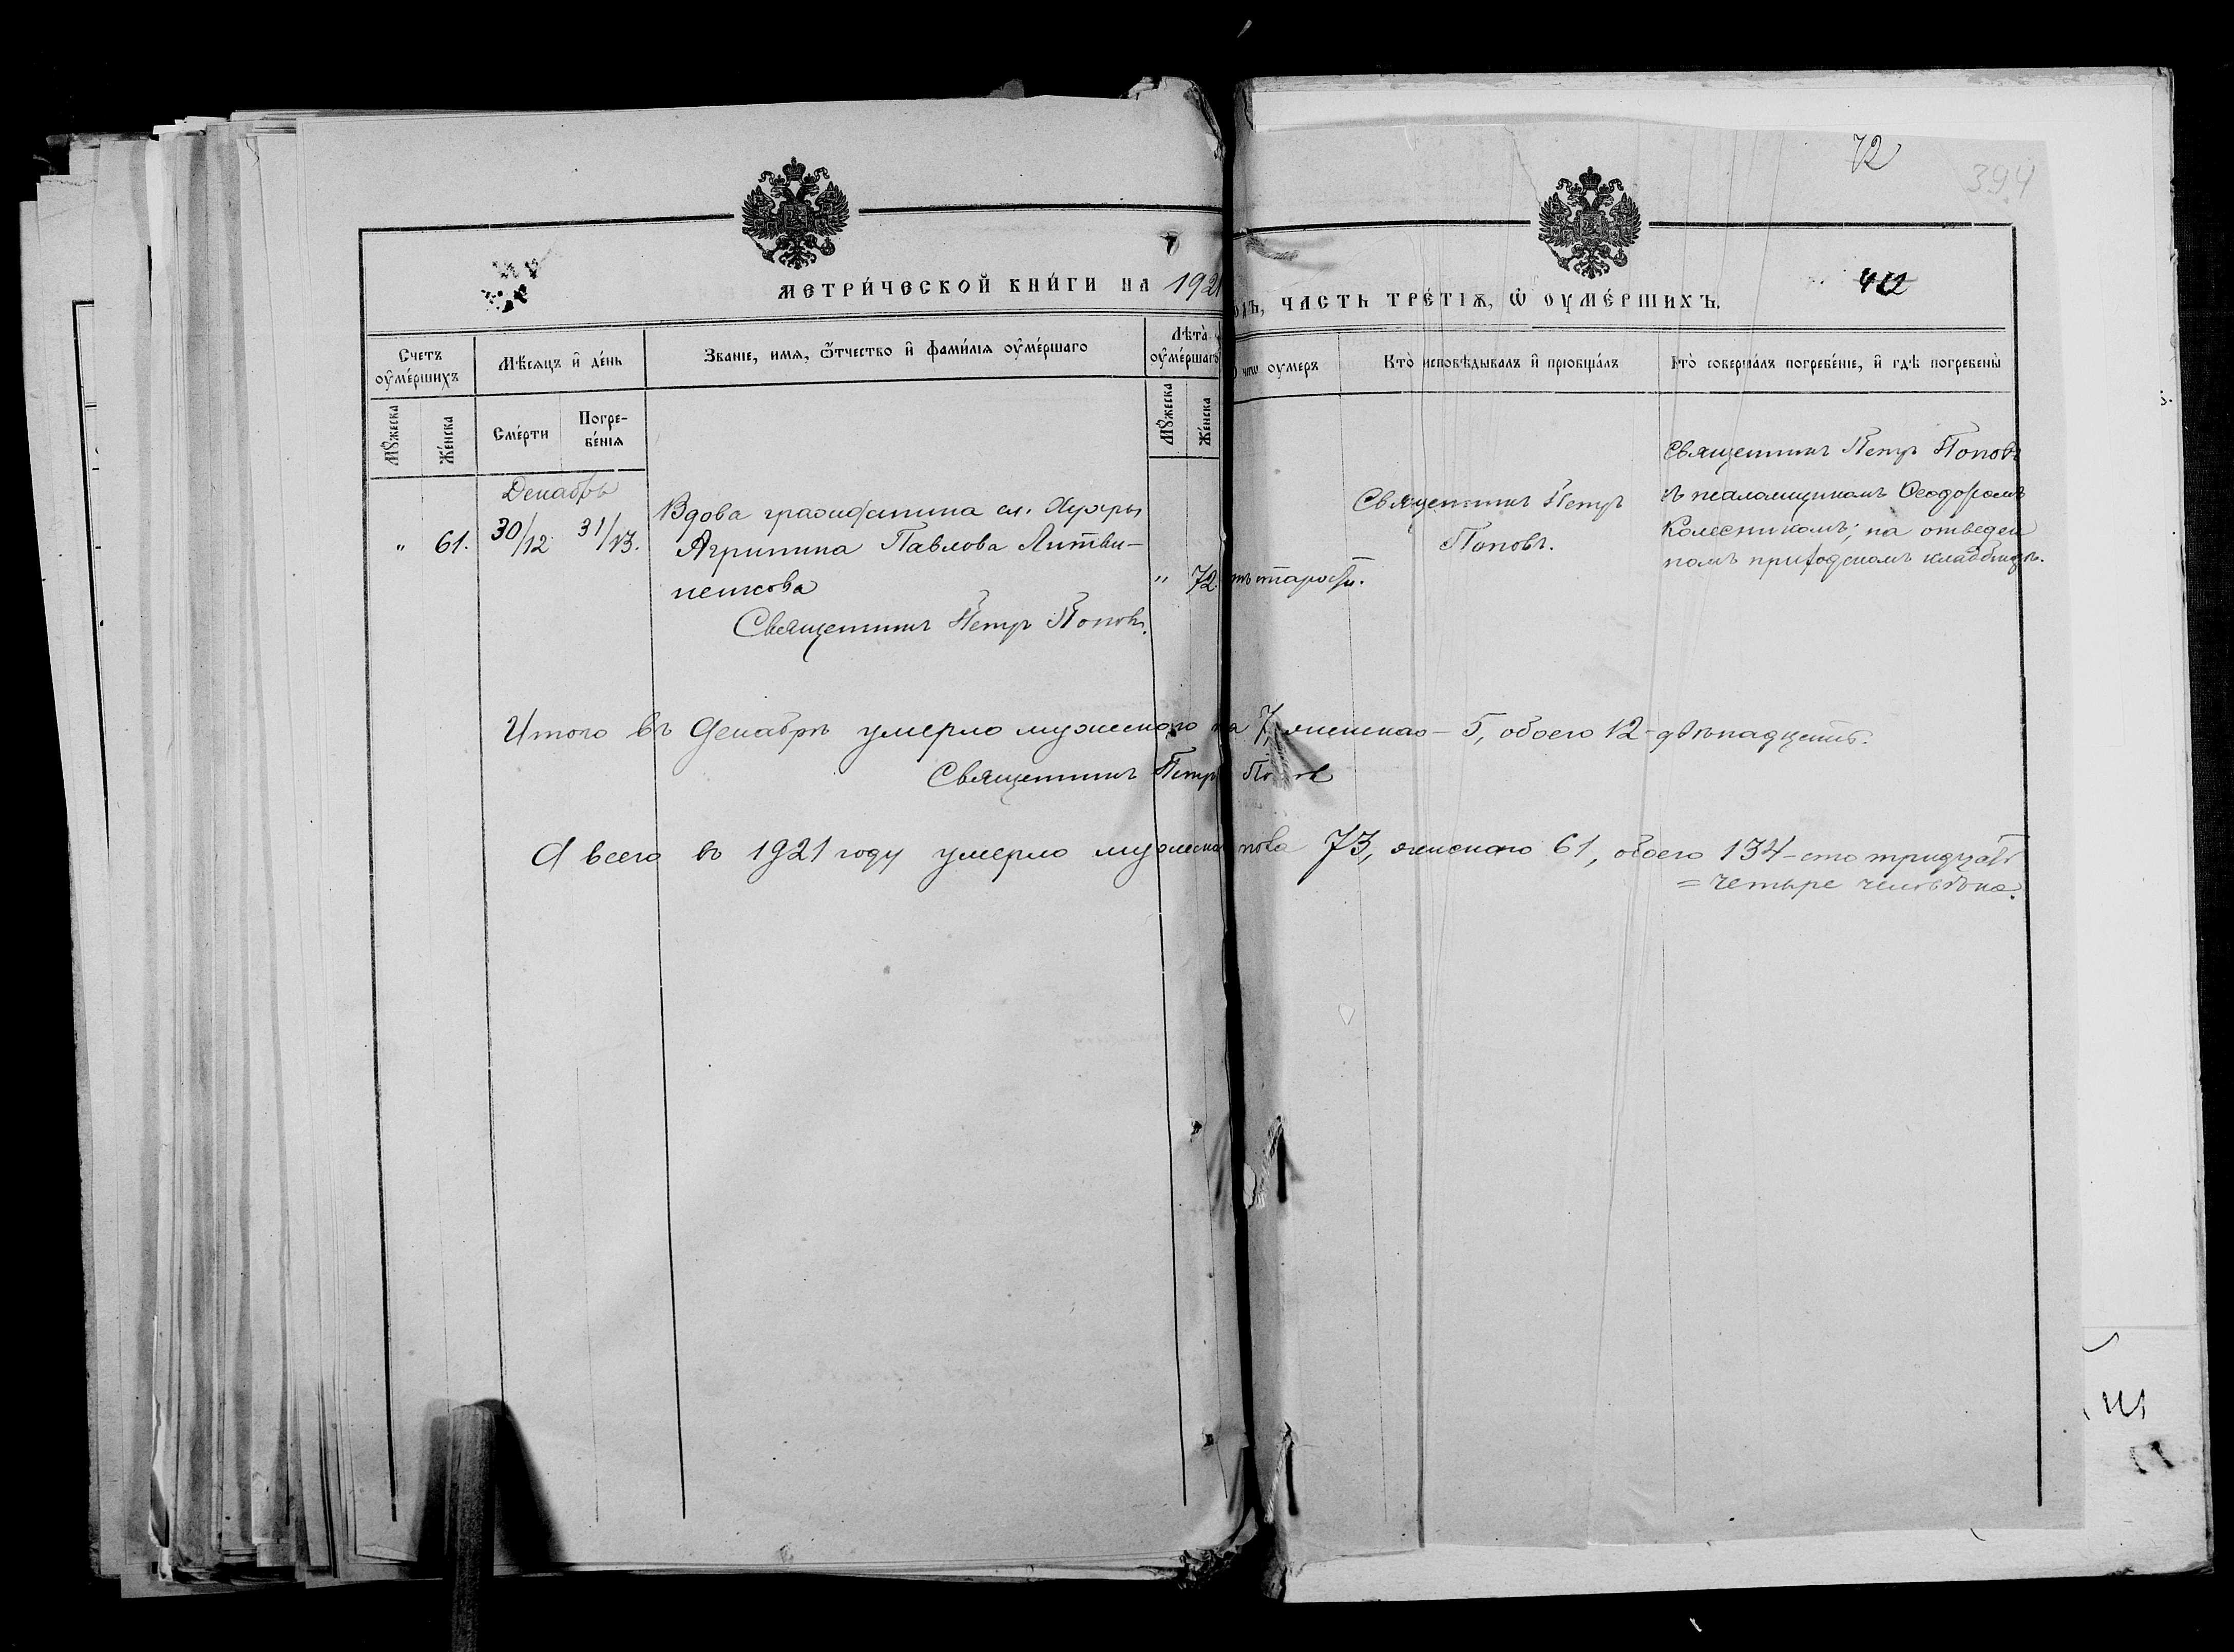 72
394
МЕТРИ́ЧЕСКОЙ КНИ́ГИ НА 1921
ОДЪ, ЧАСТЬ ТРЕ́ТІѦ, Ѡ ОУМЕ́РШИХЪ.
412
Счетъ оуме́ршихъ
Мѣсяцъ и де́нь
Званіе, имѧ, ѿтчество и фами́лія оуме́ршаго
Лѣта оуме́ршагѡ
ѿ чегѡ оумеръ
Кто̀ исповѣдывалъ и пріобща́лъ
Кто̀ соверша́лъ погребе́ніе, и гдѣ погребены̀
Мꙋжеска
Же́нска
Сме́рти
Погребе́нія
Мꙋжеска
Же́нска
Декабрь
„ 61. 30/12 31/13.
Вдова гражданина сл.
Агрипина Павлова Литви-
ненкова
Священникъ Петръ Поповъ.
„ 72
отъ старости.
Священникъ Петръ
Поповъ.
Священникъ Петръ Поповъ
съ псаломщикомъ Ѳеодоромъ
Колесникомъ; на отведен
номъ приходскомъ кладбищѣ.
Итого въ Декабрѣ умерло мужеского по 7, женскаго – 5, обоего 12 – двѣнадцать.
Священникъ Петръ Попов
А всего въ 1921 году умерло мужеска пола 73, женского 61, обоего 134 – сто тридцать
= четыре человѣка.